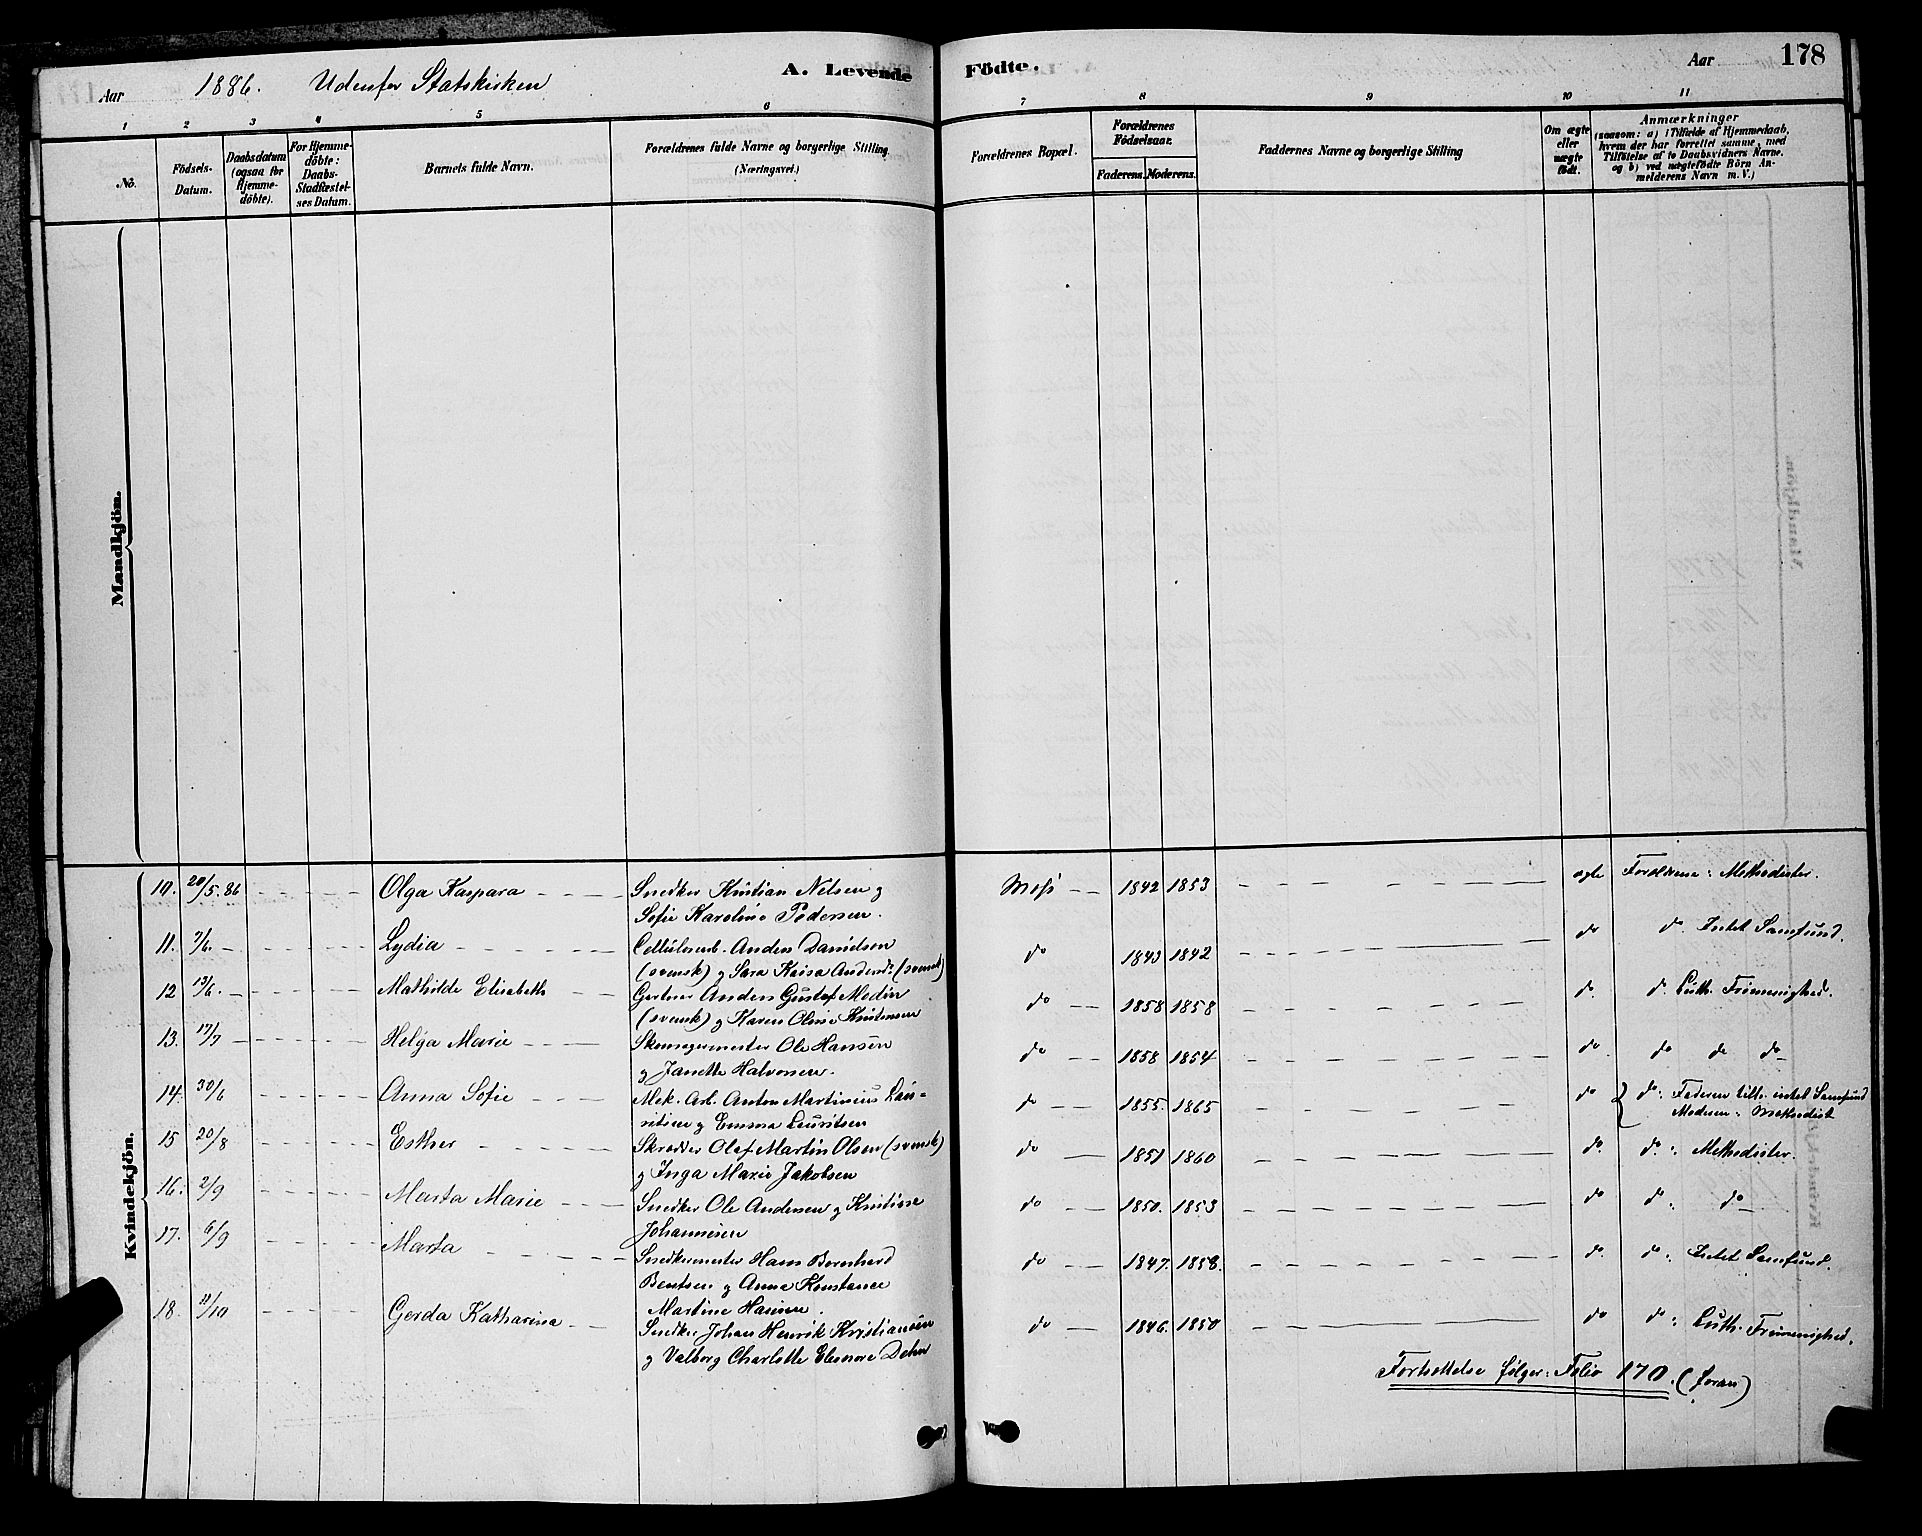 Aar 1886. Udenfor Statskirken A. Levende Födte. Aar 178
1 2 3 4 5 6 7 8 9 10 11
No.
Födsels-
Datum.
Daabsdatum
(ogsaa for
Hjemme-
döbte).
For Hjemme-
döbte:
Daabs-
Stadfæstel-
ses Datum.
Barnets fulde Navn.
Forældrenes fulde Navne og borgerlige Stilling
(Næringsvei.)
Forældrenes Bopæl.
Forældrenes
Födselsaar.
Faderens. Moderens.
Faddernes Navne og borgerlige Stilling
Om ægte
eller
uægte
födt.
Anmærkninger
(saasom: a) i Tilfælde af Hjemmedaab,
hvem der har forrettet samme, med
Tilföielse af to Daabsvidners Navne.
og b) ved uægtefödte Börn An-
melderens Navn m. V.)
Mandkjön.
Kvindekjön.
10. 20/5. 86 Olga Kaspara Snedker Kristian Nelsen og Moss 1842 1853 ægte Forældrene: Methodister.
Sofie Karoline Pedersen.
11. 7/6. Lydia Cellulosearb. Anders Danielsen do 1843 1842 do d. Intet Samfund.
(svensk) og Sara Kaisa Andersd. (svensk)
12 13/6. Mathilde Elisabeth Gartner Anders Gustaf Modin do 1858 1858 d. d. Luth. Frimenighed.
(svensk) og Karen Oline Kristensen
13. 17/7 Helga Marie Skomagermester Ole Hansen do 1858 1854 do do do do
og Janette Halvorsen.
14. 30/6 Anna Sofie Mek. Arb. Anton Martinius Lau- do 1855. 1865 do do: Faderen tilh. intet Samfund
ritsen og Emma Lauritsen Moderen: Methodist
15 20/8 Esther Skrædder Olaf Martin Olsen (svensk) do 1851 1860 do. do: Methodister.
og Inga Marie Jakobsen
16. 2/9 Marta Marie Snedker Ole Andersen og Kristine do 1850. 1853 do do: do
Johannesen
17. 6/9 Marta Snedkermester Hans Bernhard do 1847. 1858. do. do: Intet Samfund.
Bentsen og Anna Konstance
Martine Hansen.
18. 11/10 Gerda Katharina Snedker Johan Henrik Kristiansen do 1846. 1850 do do: Luth. Frimenighed.
og Valborg Charlotte Eleonore Dehn
Fortsættelse følger: Folio 170. (foran)